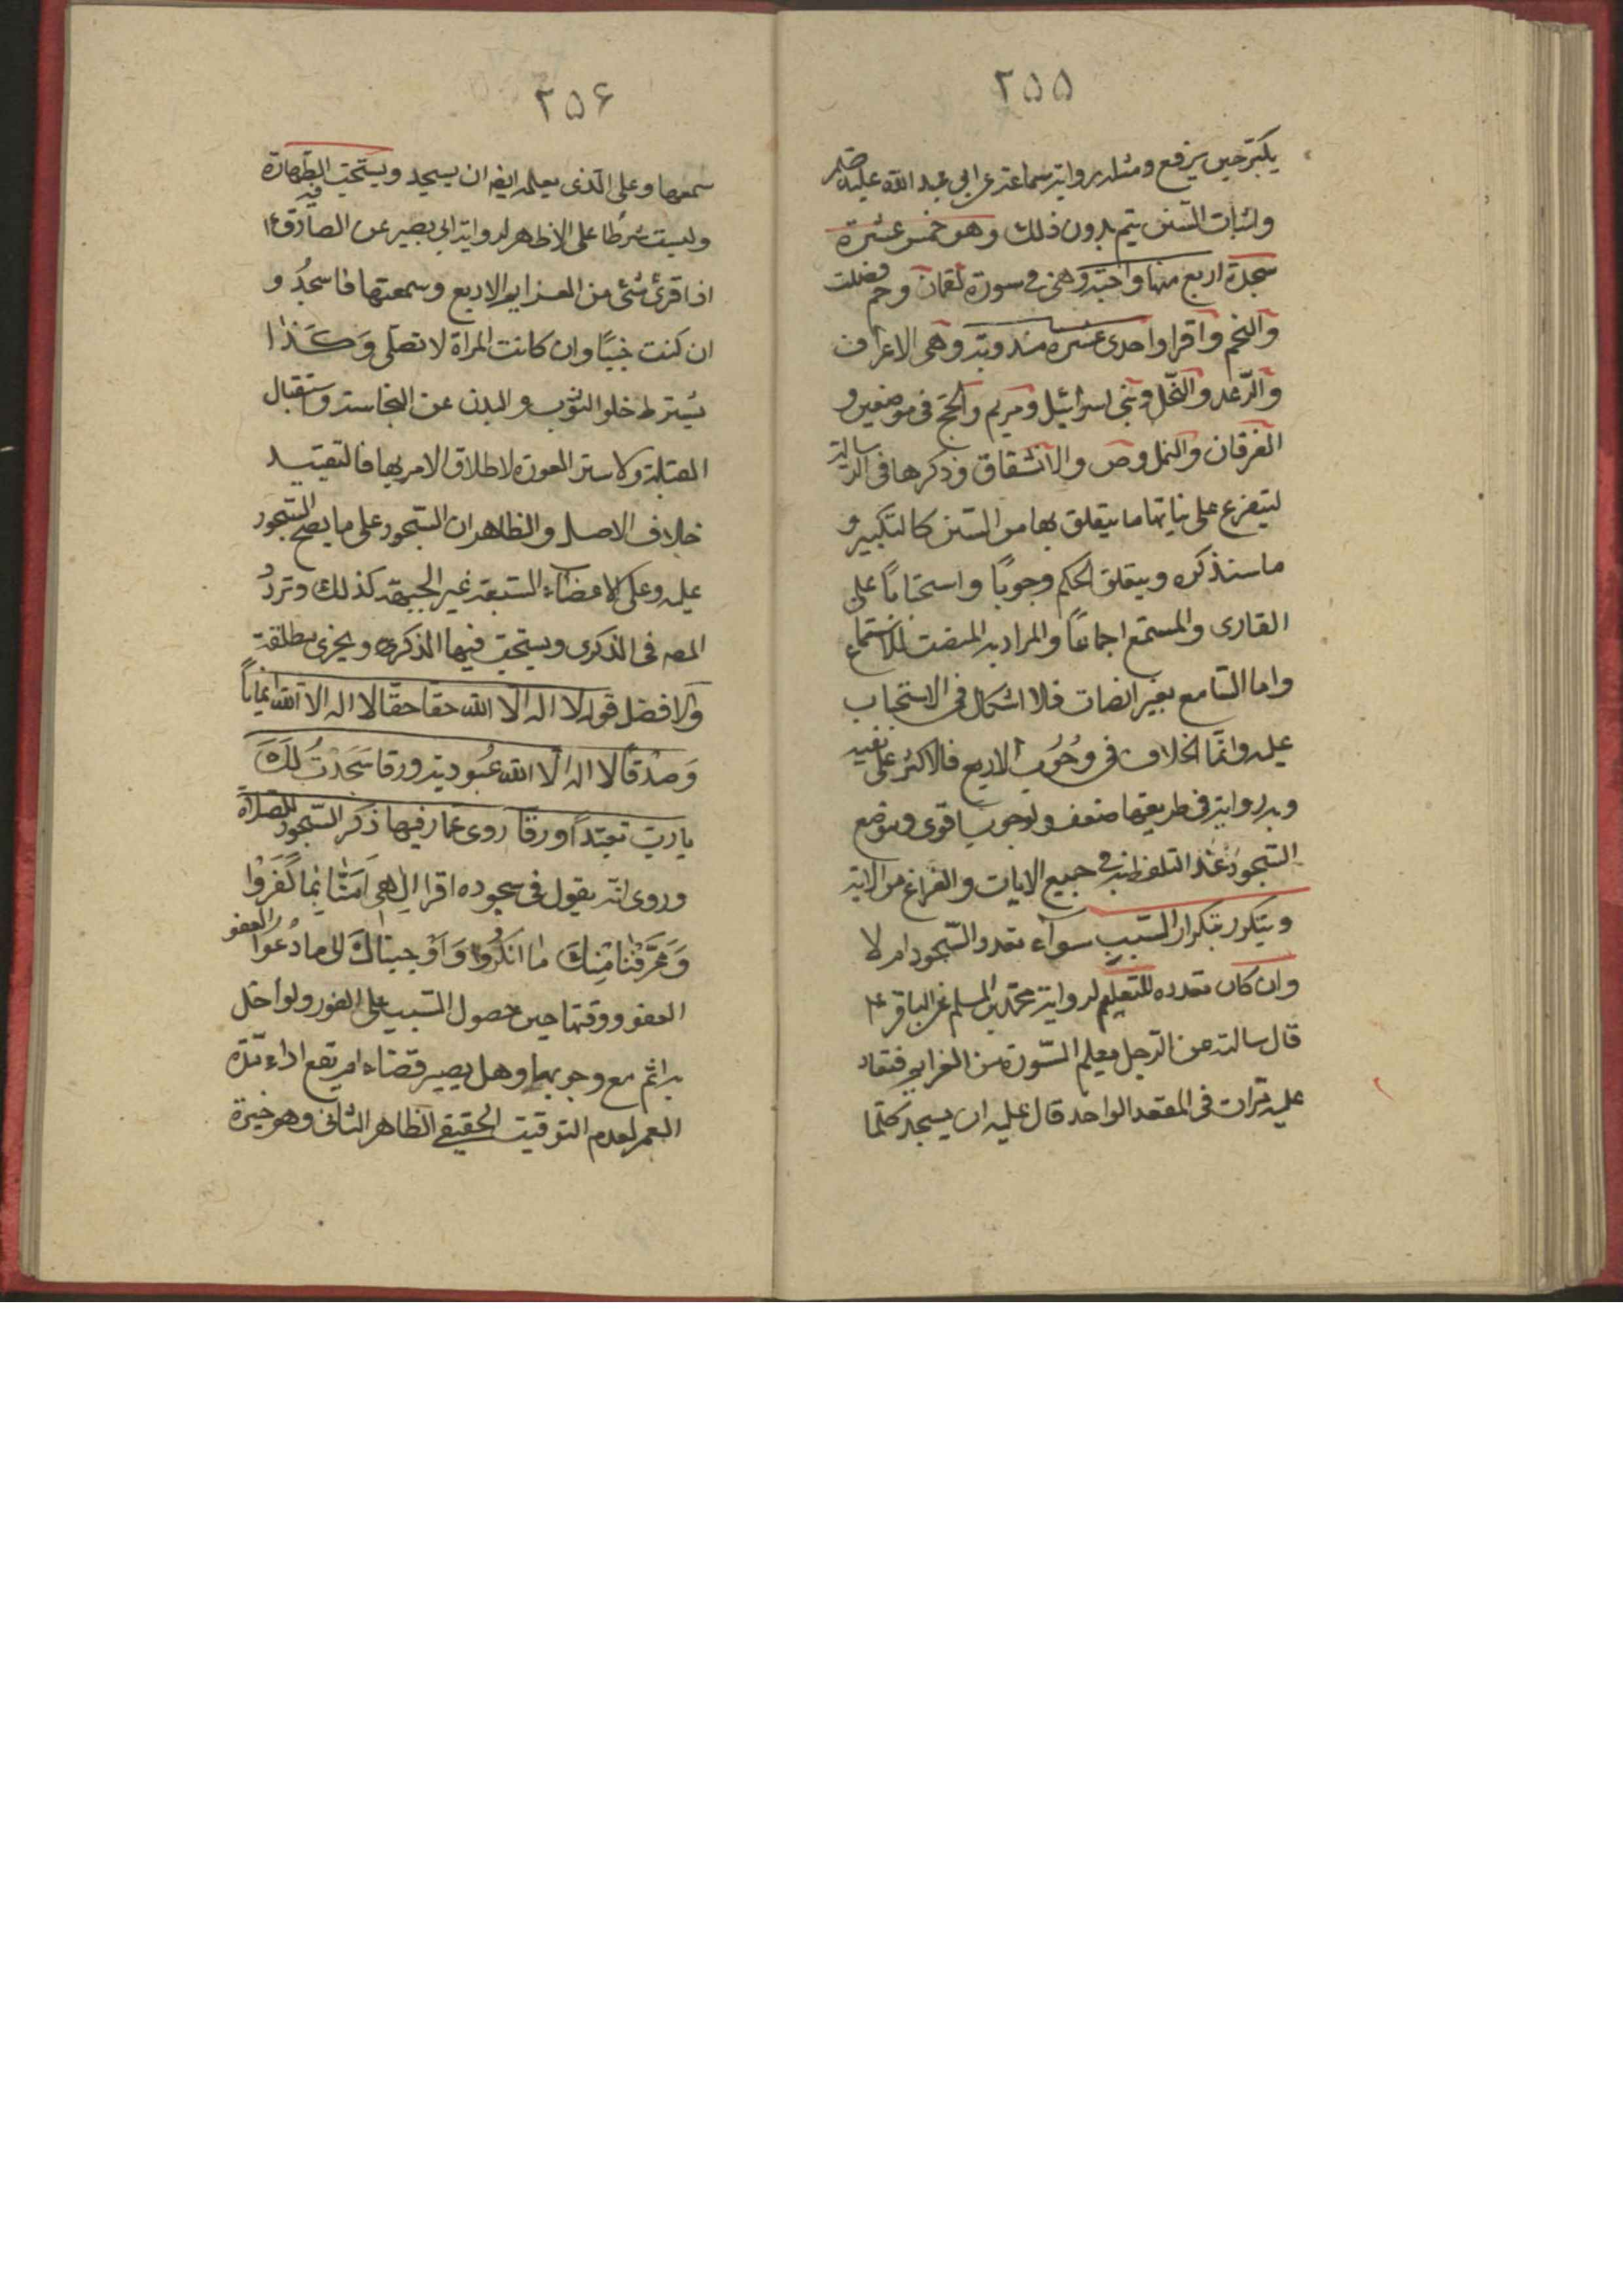 ٢٥٥
يكبّر حين يرفع ومثله رواية سماعة عن ابي عبد الله عليه
واثبات السنن يتم بدون ذلك وهو خمس عشرة
سجدة اربع منها واجبة وهى فى سورة لقمان وحم فصلت
والنجم واقرا واحدى عشره مندوبة وهى الاعراف
والرّعد والنّحل وبنى اسرائيل ومريم والحج فى موضعين و
الفرقان والنمل وص والانشقاق وذكرها فى الرسالة
ليتفرع على نياتها ما يتعلق بها من السنن كالتكبير و
ما سنذكره ويتعلق الحكم وجوبًا واستحبابًا على
القارى والمستمع اجماعًا والمراد به المنصت للاستماع
واما السّامع بغير انصات فلا اشكال فى الاستحباب
عليه وانّما الخلاف فى وُجُوب الاربع فالاكثر على نفيه
وبه رواية فى طريقها ضعف والوجوب اقوى وموضع
السّجود عند التلفظ به فى جميع الايات والفراغ من الاية
ويتكرر بتكرار السّبب سوآء تعدد السّجود ام لا
وان كان تعدده للتعليم لرواية محمد بن المسلم عن الباقر ع
قال سالته عن الرجل يعلم السّورة من العزايم فتعاد
عليه مرّات فى المقعد الواحد قال عليه ان يسجد كلّما
٢٥۶
سمعها وعلى الّذى يعلمه ايضا ان يسجد ويستحب الطّهارة فيه
وليست شرطا على الاظهر لرواية ابى بصير عن الصادق ع
اذا قرئ شئ من العزايم الاربع وسمعتها فاسجُد و
ان كنت جنبًا وان كانت المراة لا تصلّى وَكَذا
يشترط خلو الثوب والبدن عن النجاسة واستقبال
القبلة ولا ستر العورة لاطلاق الامر بها فالتقييد
خلاف الاصل والظاهر ان السّجود على ما يصح السّجود
عليه وعلى الاعضاء السّبعة غير الجبهة كذلك وتردّد
المصه فى الذكرى ويستحب فيها الذكر ويجزى مطلقه
والافضل قول لا اله الا الله حقا حقا لا اله الا الله ايمانًا
وَصدقًا لا اله الا الله عُبودية ورقا سَجَدْتُ لَكَ
يا ربّ تعبّدًا ورقا روى عمار فيها ذكر السّجود للصلاة
وروى انّه يقول فى سجوده اقرا اِلهى اَمَنّا بِما كَفَرُوا
وَعَرَفْنا مِنكَ ما انكَرُوا وَاَجبناكَ الى ما دُعُوا العفو
العفو ووقتها حين حصول السّبب على الفور ولو اخل
به اثم مع وجوبها وهل يصير قضاء ام تقع اداء مدّة
العمر لعدم التوقيت الحقيقى الظاهر الثانى وهو خيرة